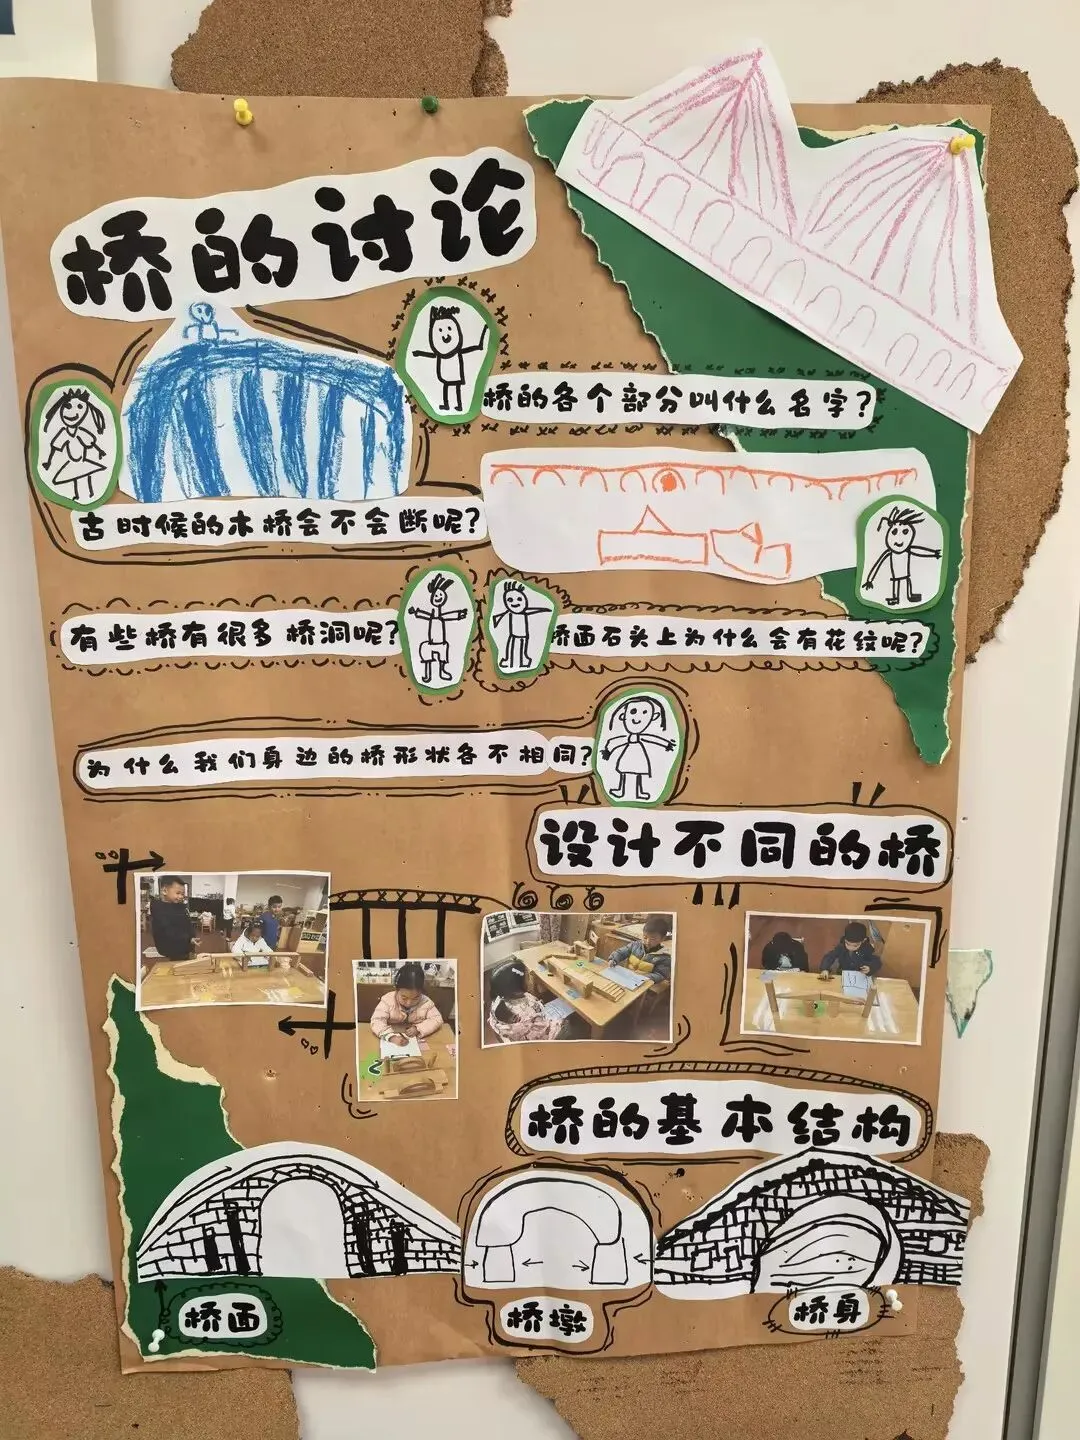 桥的讨论
桥的各个部分叫什么名字?
古时候的木桥会不会断呢?
有些桥有很多桥洞呢?
桥面石头上为什么会有花纹呢?
为什么我们身边的桥形状各不相同?
设计不同的桥
2
桥的基本结构
桥面
桥墩
桥身